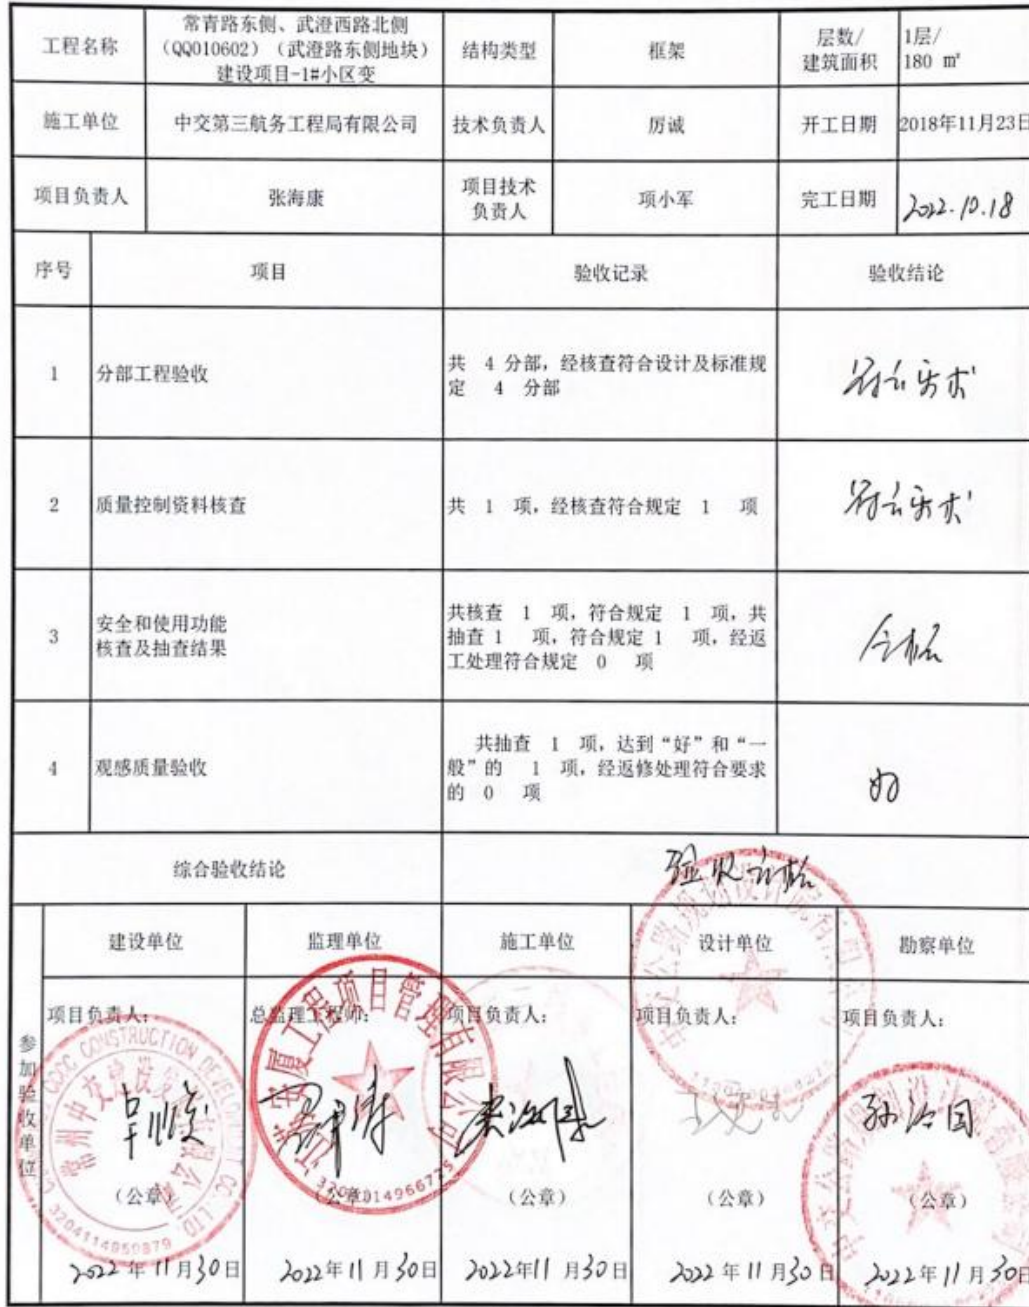 工程名称
常青路东侧、武澄西路北侧
（QQ010602）（武澄路东侧地块）
建设项目-1#小区变
结构类型
框架
层数/
建筑面积
1层/
180 ㎡
施工单位
中交第三航务工程局有限公司
技术负责人
厉诚
开工日期
2018年11月23日
项目负责人
张海康
项目技术
负责人
项小军
完工日期
2022.10.18
序号
项目
验收记录
验收结论
1
分部工程验收
共 4 分部，经核查符合设计及标准规
定 4 分部
符合要求
2
质量控制资料核查
共 1 项，经核查符合规定 1 项
符合要求
3
安全和使用功能
核查及抽查结果
共核查 1 项，符合规定 1 项，共
抽查 1 项，符合规定 1 项，经返
工处理符合规定 0 项
合格
4
观感质量验收
共抽查 1 项，达到“好”和“一
般”的 1 项，经返修处理符合要求
的 0 项
好
综合验收结论
验收合格
参加验收单位
建设单位
监理单位
施工单位
设计单位
勘察单位
项目负责人：
总监理工程师：
项目负责人：
项目负责人：
项目负责人：
孙治国
（公章）
（公章）
（公章）
（公章）
（公章）
2022年11月30日
2022年11月30日
2022年11月30日
2022年11月30日
2022年11月30日
CCCC CONSTRUCTION DEVELOPMENT CO.,LTD
3204114950879
江苏安厦工程项目管理有限公司